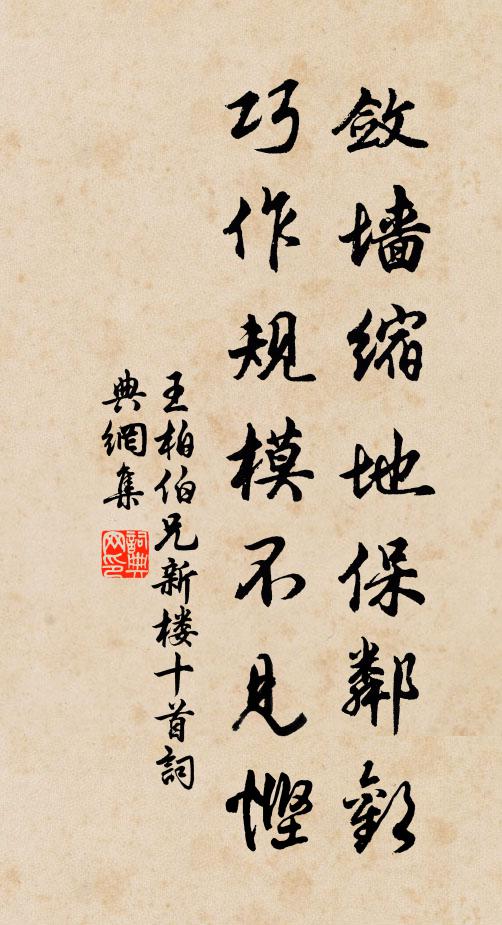 敛墙縮地保鄰歡
巧作规模不见慳
王柏伯兄新楼十首詞
典網集
詞典
网印